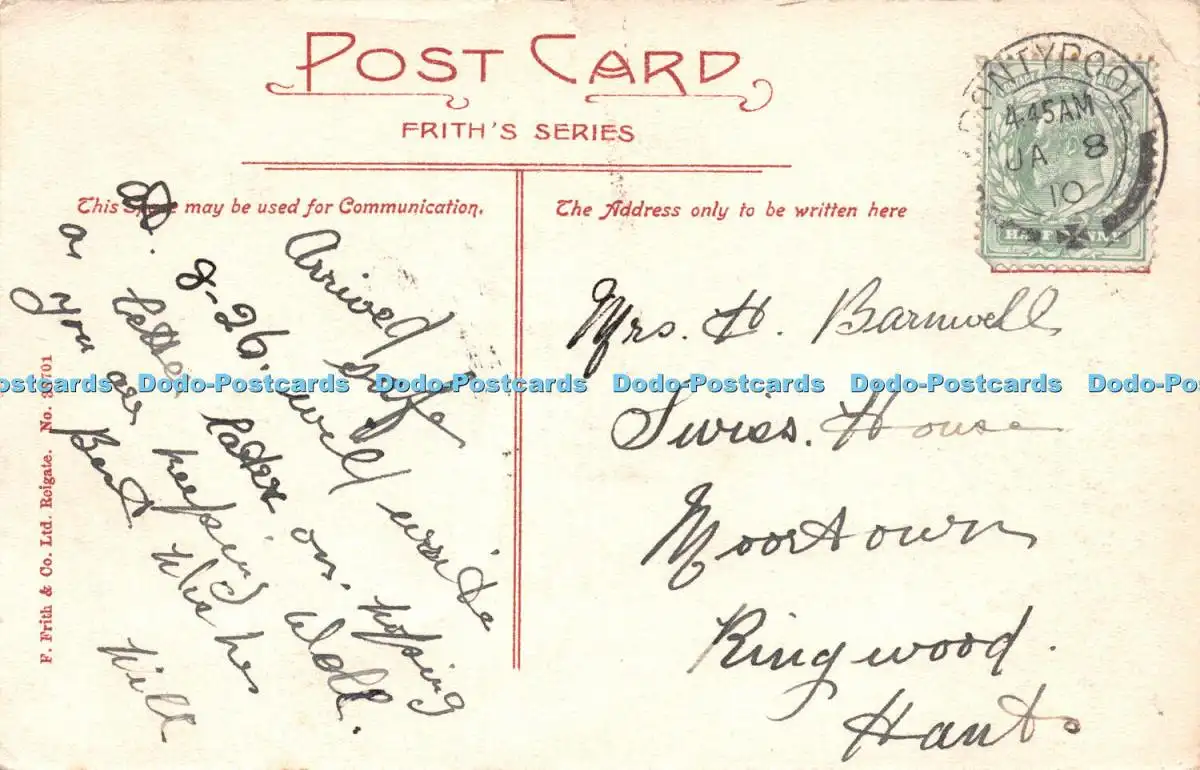 POST CARD
FRITH'S SERIES
This Space may be used for Communication.
The Address only to be written here
PONTYPOOL
4.45AM
JA 8
10
HALFPENNY
Arrived safe
at. 8-26. will write
letter later on. hopping
as you are keeping Well.
Best Wishes
Will
Mrs. H. Barnwell
Swiss. House
Moortown
Ringwood.
Hants
F. Frith & Co. Ltd. Reigate. No.
Dodo-Postcards Dodo-Postcards Dodo-Postcards Dodo-Postcards Dodo-Postcards